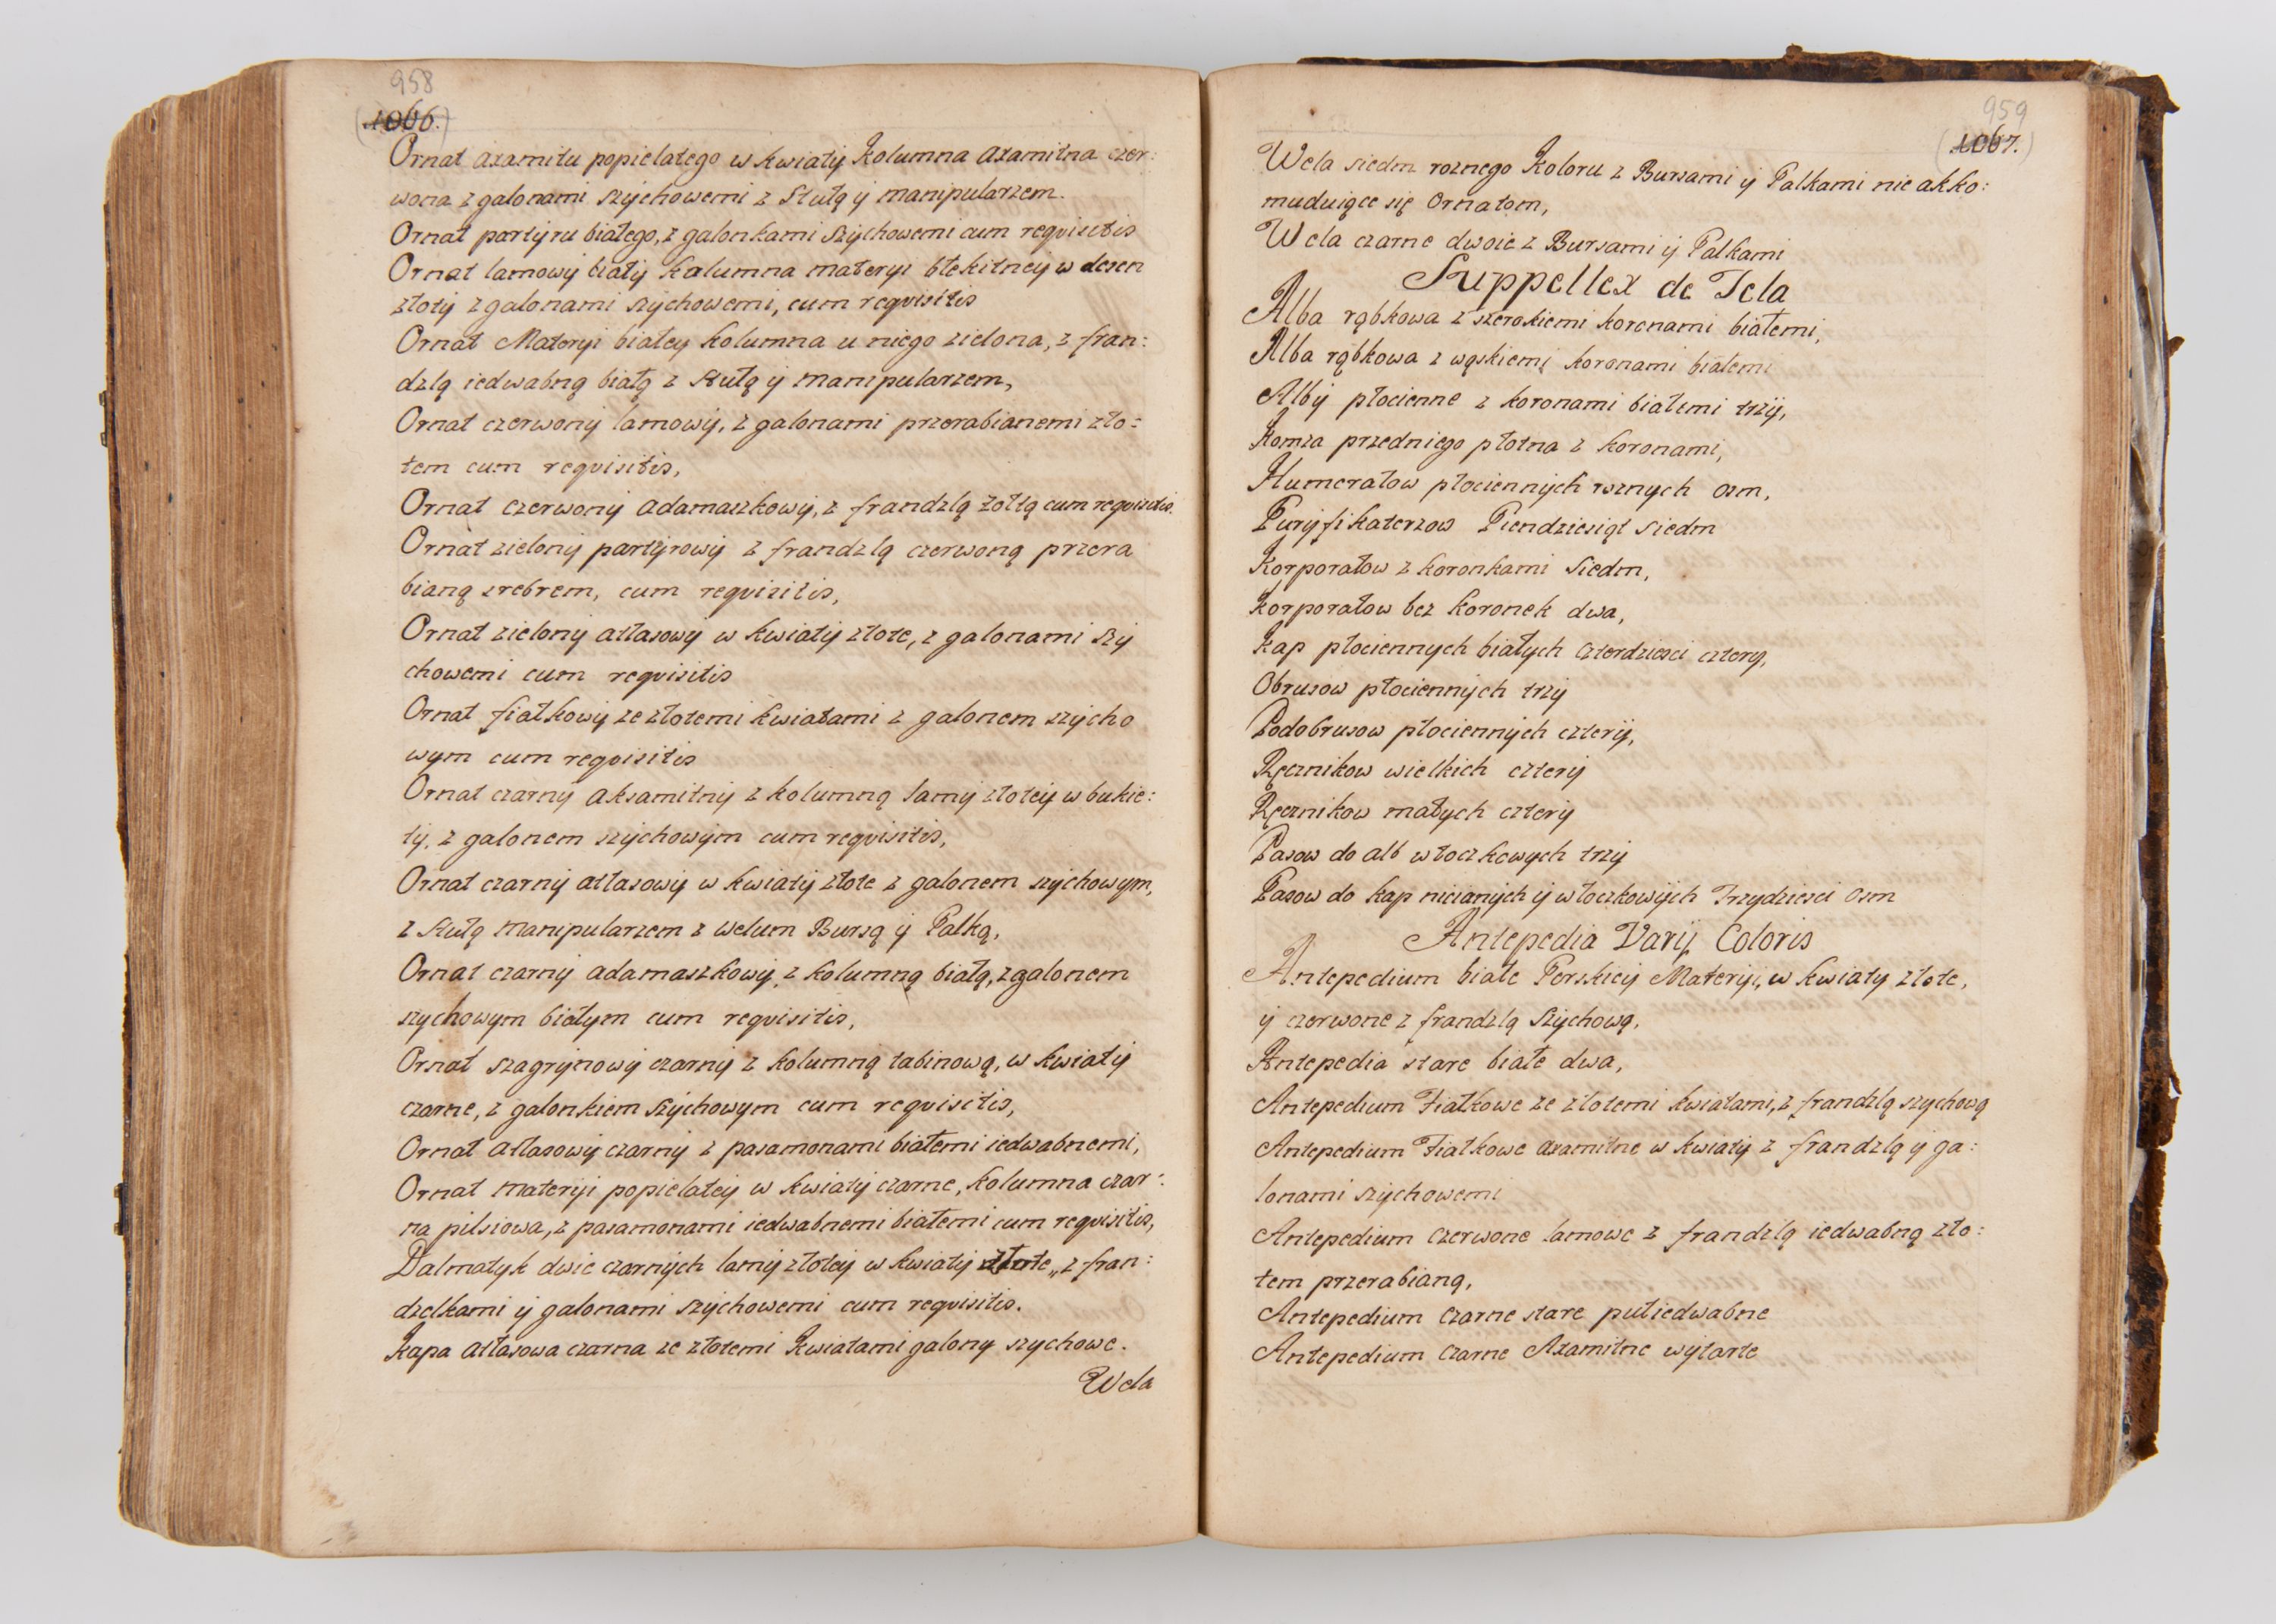 958
1066.
Ornat axamitu popielatego w kwiaty kolumna axamitna czer:
wona z galonami szychowemi z Stułą y manipularzem.
Ornat partyru białego, z galonkami szychowemi cum reqvisitis
Ornat lamowy biały kolumna materyi błekitney w desen
złoty z galonami szychowemi, cum reqvisitis
Ornat Materyi białey kolumna u niego zielona, z fran:
dzlą iedwabną białą z Stułą y manipularzem,
Ornat czerwony lamowy, z galonami przerabianemi zło:
tem cum reqvisitis,
Ornat czerwony adamaszkowy, z frandzlą żołtą cum reqvisitis.
Ornat zielony partyrowy z frandzlą czerwoną przera
bianą srebrem, cum reqvisitis,
Ornat zielony atłasowy w kwiaty złote, z galonami szy
chowemi cum reqvisitis
Ornat fiałkowy ze złotemi kwiatami z galonem szycho
wym cum reqvisitis
Ornat czarny aksamitny z kolumną lamy złotey w bukie:
ty, z galonem szychowym cum reqvisitis,
Ornat czarny atłasowy w kwiaty złote z galonem szychowym,
z stułą manipularzem z welum Bursą y Palką,
Ornat czarny adamaszkowy, z kolumną białą, z galonem
szychowym białym cum reqvisitis,
Ornat szagrynowy czarny z kolumną tabinową, w kwiaty
czarne, z galonkiem szychowym cum reqvisitis,
Ornat atłasowy czarny z pasamonami białemi iedwabnemi,
Ornat materyi popielatey w kwiaty czarne, kolumna czar:
na pilsiowa, z pasamonami iedwabnemi białemi cum reqvisitis,
Dalmatyk dwie czarnych lamy złotey w kwiaty złote, z fran:
dzelkami y galonami szychowemi cum reqvisitis.
Kapa atłasowa czarna ze złotemi kwiatami galony szychowe.
Wela
959
1067.
Wela siedm roznego koloru z Bursami y Palkami nie akko:
muduiące się Ornatom,
Wela czarne dwoie z Bursami y Palkami
Suppellex de Tela
Alba rąbkowa z szerokiemi koronami białemi,
Alba rąbkowa z wąskiemi koronami białemi
Alby płocienne z koronami białemi trzy,
Komza przedniego płotna z koronami,
Humerałow płociennych roznych osm,
Puryfikaterzow Piendziesiąt siedm
Korporałow z koronkami siedm,
Korporałow bez koronek dwa,
Kap płociennych białych czterdziesci cztery,
Obrusow płociennych trzy
Podobrusow płociennych cztery,
Ręcznikow wielkich cztery
Ręcznikow małych cztery
Pasow do alb włoczkowych trzy
Pasow do kap nicianych y włoczkowych Trzydziesci osm
Antepedia Varij Coloris
Antepedium białe Perskiey Materyi, w kwiaty złote,
y czerwone z frandzlą szychową,
Antepedia stare białe dwa,
Antepedium Fiałkowe ze złotemi kwiatami, z frandzlą szychową
Antepedium Fiałkowe axamitne w kwiaty z frandzlą y ga:
lonami szychowemi
Antepedium czerwone lamowe z frandzlą iedwabną zło:
tem przerabianą,
Antepedium czarne stare pułiedwabne
Antepedium czarne Axamitne wytarte